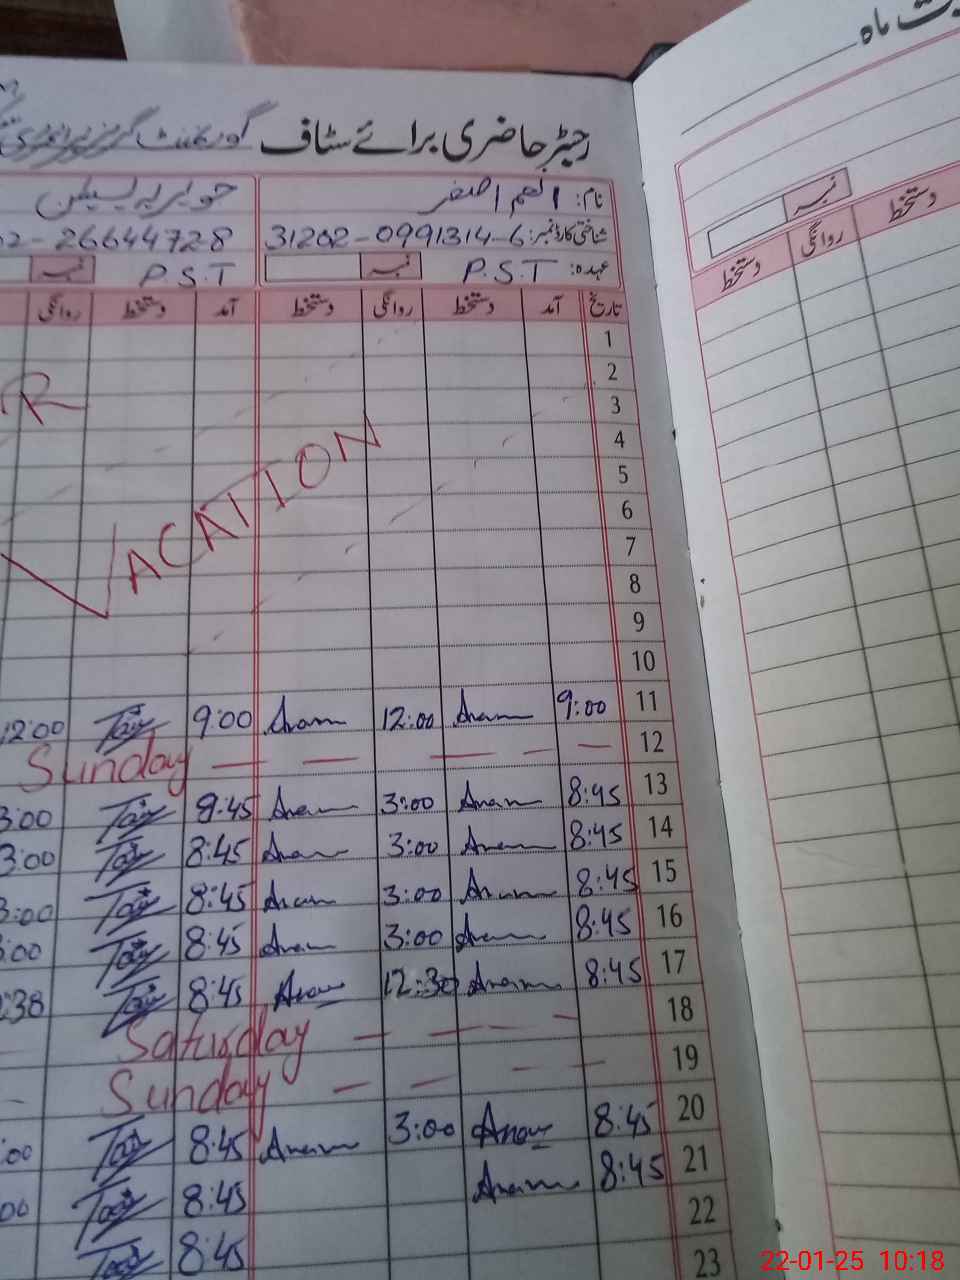 ت ماہ
رجسٹر حاضری برائے سٹاف گورنمنٹ گرلز
نام: انعم اصغر
شناختی کارڈ نمبر: 31202-0991314-6 26644728
عہدہ: P.S.T نمبر P.S.T نمبر
تاریخ آمد دستخط روانگی دستخط آمد دستخط روانگی
نمبر
دستخط روانگی دستخط
1
2
3
R
4
VACATION
5
6
7
8
9
10
12:00 9:00 Anam 12:00 Anam 9:00 11
Sunday — — — — — 12
3:00 9:45 Anam 3:00 Anam 8:45 13
3:00 8:45 Anam 3:00 Anam 8:45 14
3:00 8:45 Anam 3:00 Anam 8:45 15
:00 8:45 Anam 3:00 Anam 8:45 16
:30 8:45 Anam 12:30 Anam 8:45 17
Saturday — — — — 18
Sunday — — — — 19
:00 8:45 Anam 3:00 Anam 8:45 20
00 8:45 Anam 8:45 21
8:45 22
23
22-01-25 10:18